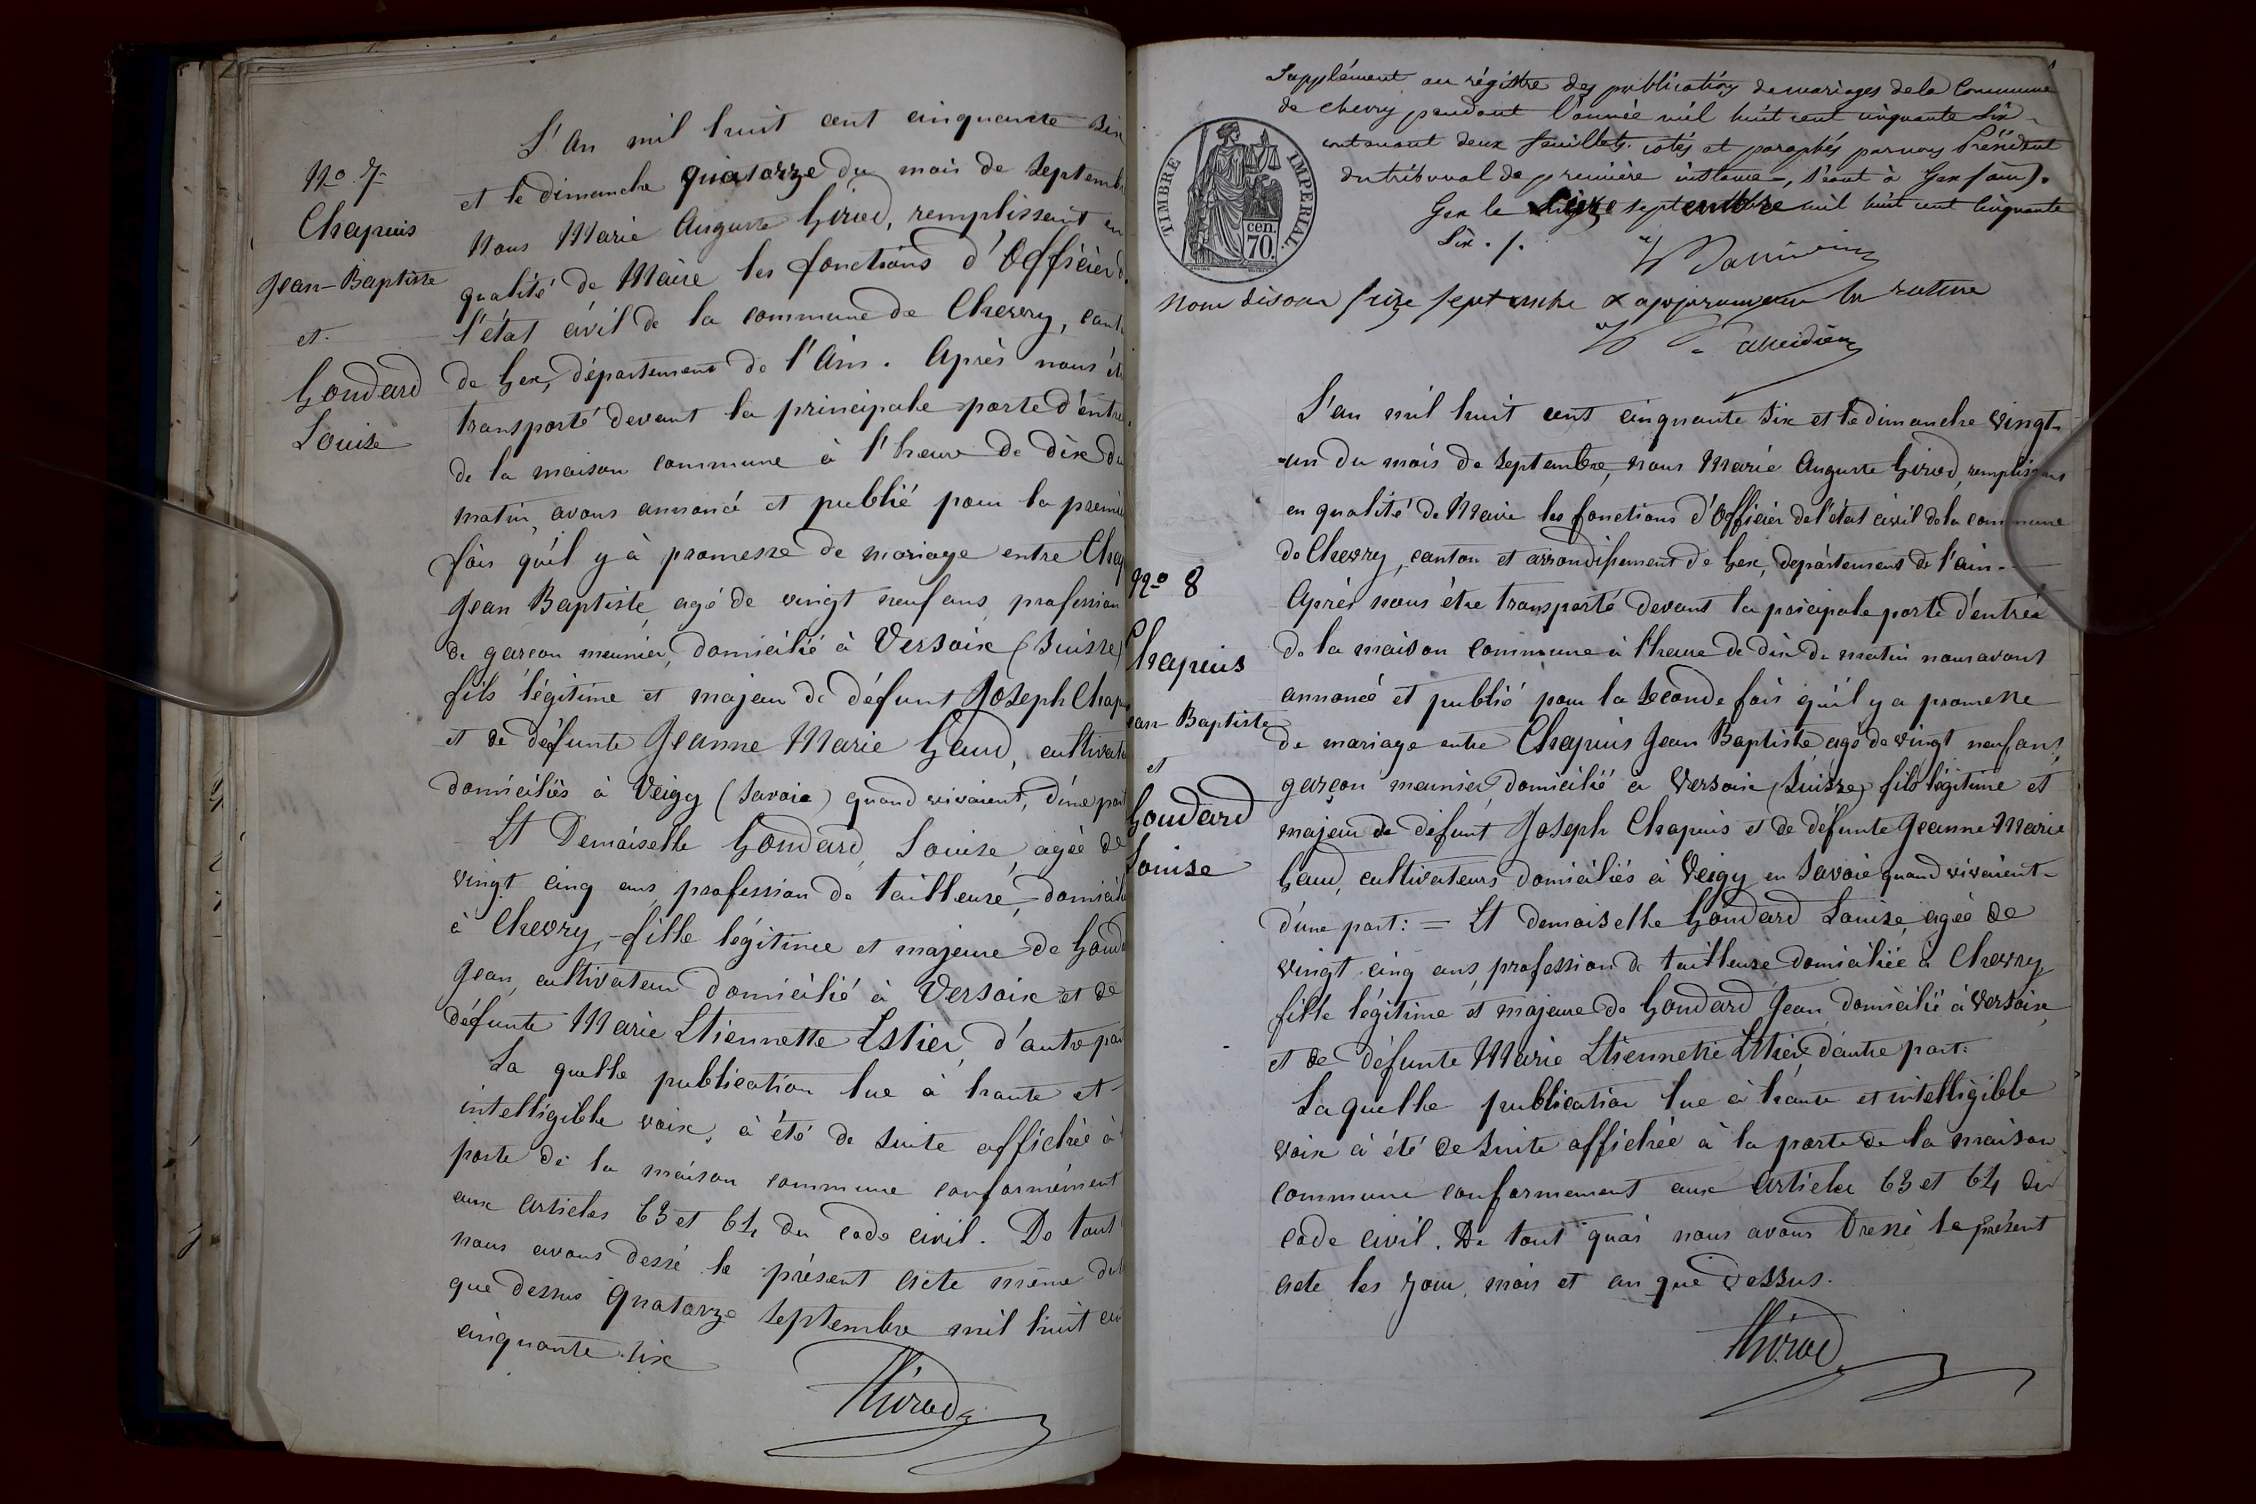 No 7
Chapuis
Jean-Baptiste
et
Goudard
Louise
L'An mil huit cent cinquante six
et le dimanche quatorze du mois de Septemb
Nous Marie Auguste Girod, remplissant en
qualité de Maire les fonctions d'Officier d
l'état civil de la commune de Chevry, cant
de Gex, département de l'Ain. Après nous êt
transporté devant la principale porte d'entré
de la maison commune à l'heure de dix du
matin, avons annoncé et publié pour la premiè
fois qu'il y à promesse de mariage entre Chap
Jean Baptiste, agé de vingt neuf ans, profession
de garçon meunier, domicilié à Versoix (Suisse)
fils légitime et majeur de défunt Joseph Chap
et de défunte Jeanne Marie Gaud, cultivate
domiciliés à Veigy (Savoie) quand vivaient, d'une part
Et Demoiselle Goudard, Louise, agée de
vingt cinq ans, profession de tailleuse, domicili
à Chevry, fille légitime et majeure de Goud
Jean, cultivateur domicilié à Versoix et de
défunte Marie Etiennette Estier, d'autre par
La quelle publication lue à haute et
intelligible voix, à été de suite affichée à
porte de la maison commune conformément
aux articles 63 et 64 du code civil. De tout
nous avons dessé le présent acte même
que dessus quatorze Septembre mil huit cen
cinquante six
Girod
Supplément au régistre des publications de mariages de la Commune
de Chevry pendant l'année mil huit cent cinquante six
contenant deux feuillets cotés et paraphés par nous Président
du tribunal de première instance, séant à Gex (ain).
Gex le Seize septembre mil huit cent cinquante
Six ./.
TIMBRE IMPERIAL
70 cen.
Nous disons Seize septembre & approuvons la rature
L'an mil huit cent cinquante six et le dimanche vingt-
-un du mois de Septembre, nous Marie Auguste Girod, remplissant
en qualité de Maire les fonctions d'Officier de l'état civil de la commune
de Chevry, canton et arrondissement de Gex, département de l'ain.
No 8
Après nous être transporté devant la pricipale porte d'entrée
de la maison commune à l'heure de dix du matin nous avons
Chapuis
annoncé et publié pour la Seconde fois qu'il y a promesse
ean-Baptiste
de mariage entre Chapuis Jean Baptiste agé de vingt neuf ans,
et
garçon meunier domicilié à Versoix (Suisse) fils légitime et
Goudard
majeur de défunt Joseph Chapuis et de défunte Jeanne Marie
Louise
Gaud, cultivateurs domiciliés à Veigy en Savoie quand vivaient-
d'une part: = Et demoiselle Goudard Louise, agée de
vingt cinq ans, profession de tailleuse domiciliée à Chevry,
fille légitime et majeure de Goudard Jean domicilié à Versoix,
et de défunte Marie Etiennette Estier d'autre part:
Laquelle publication lue à haute et intelligible
voix à été de suite affichée à la porte de la maison
commune conformement aux articles 63 et 64 du
code civil. De tout quoi nous avons Dressé le présent
acte les jour, mois et an que dessus.
Girod